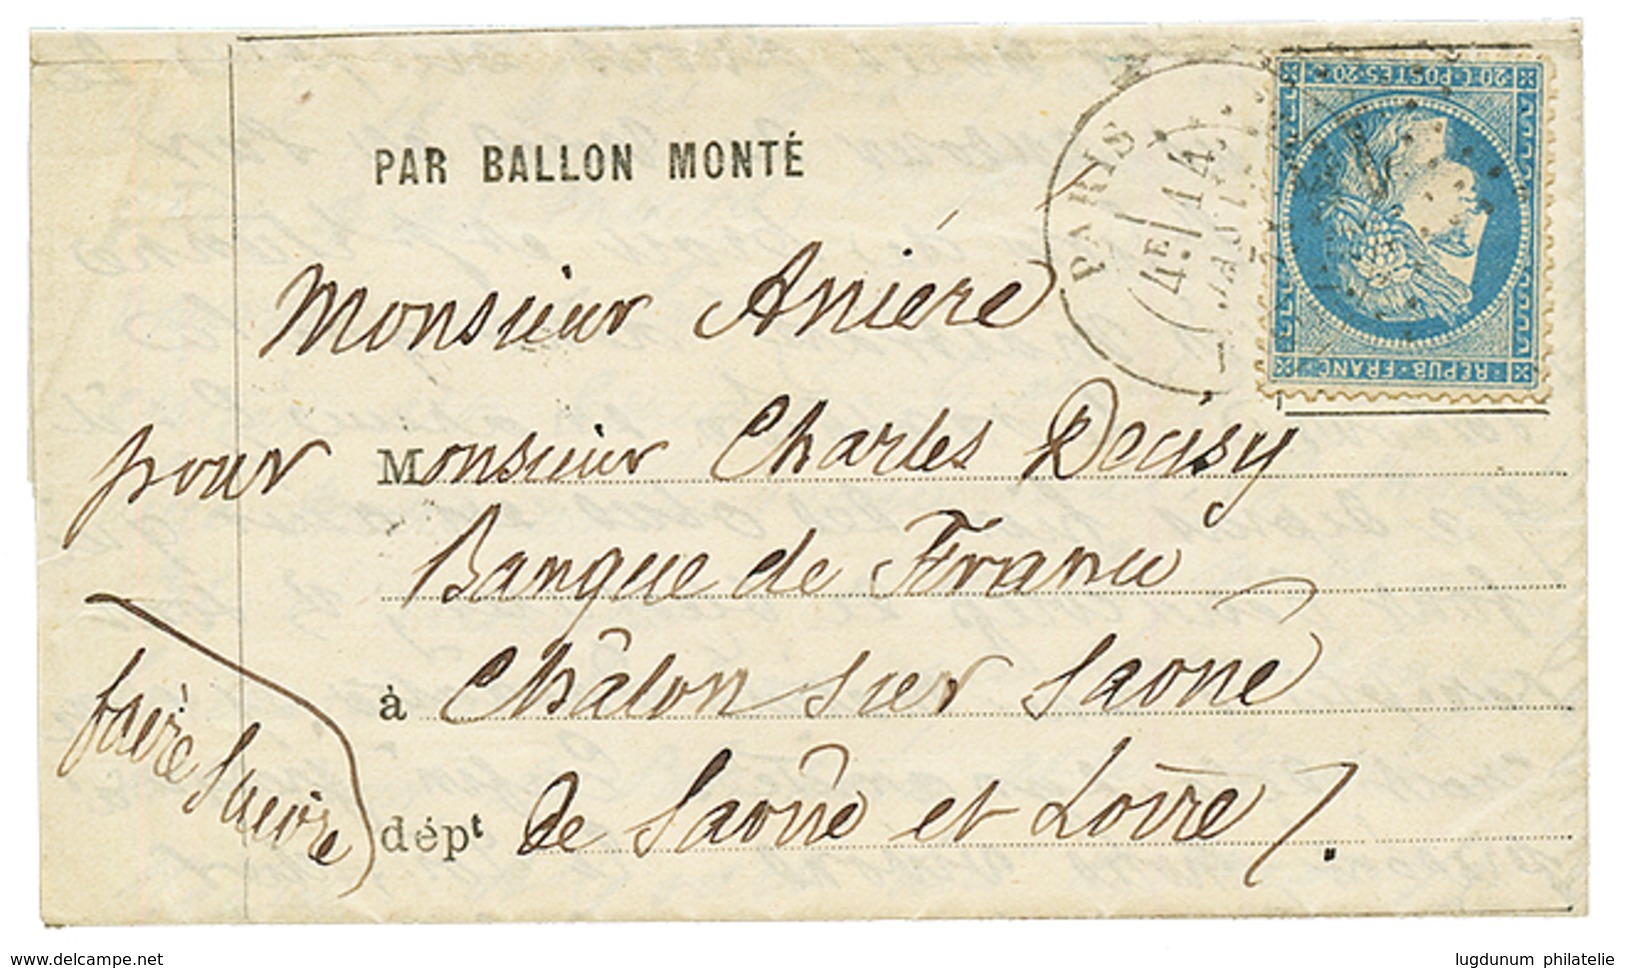 PAR BALLON MONTÉ
PARIS
4E/ 14
JANV.
20 C. POSTES 20
REPUB. FRANC.
Monsieur Anière
pour Monsieur Charles Deyisy
Banque de France
à Châlon sur Saône
faire suivre
dépt de Saône et Loire /.
www.delcampe.net
lugdunum philatelie